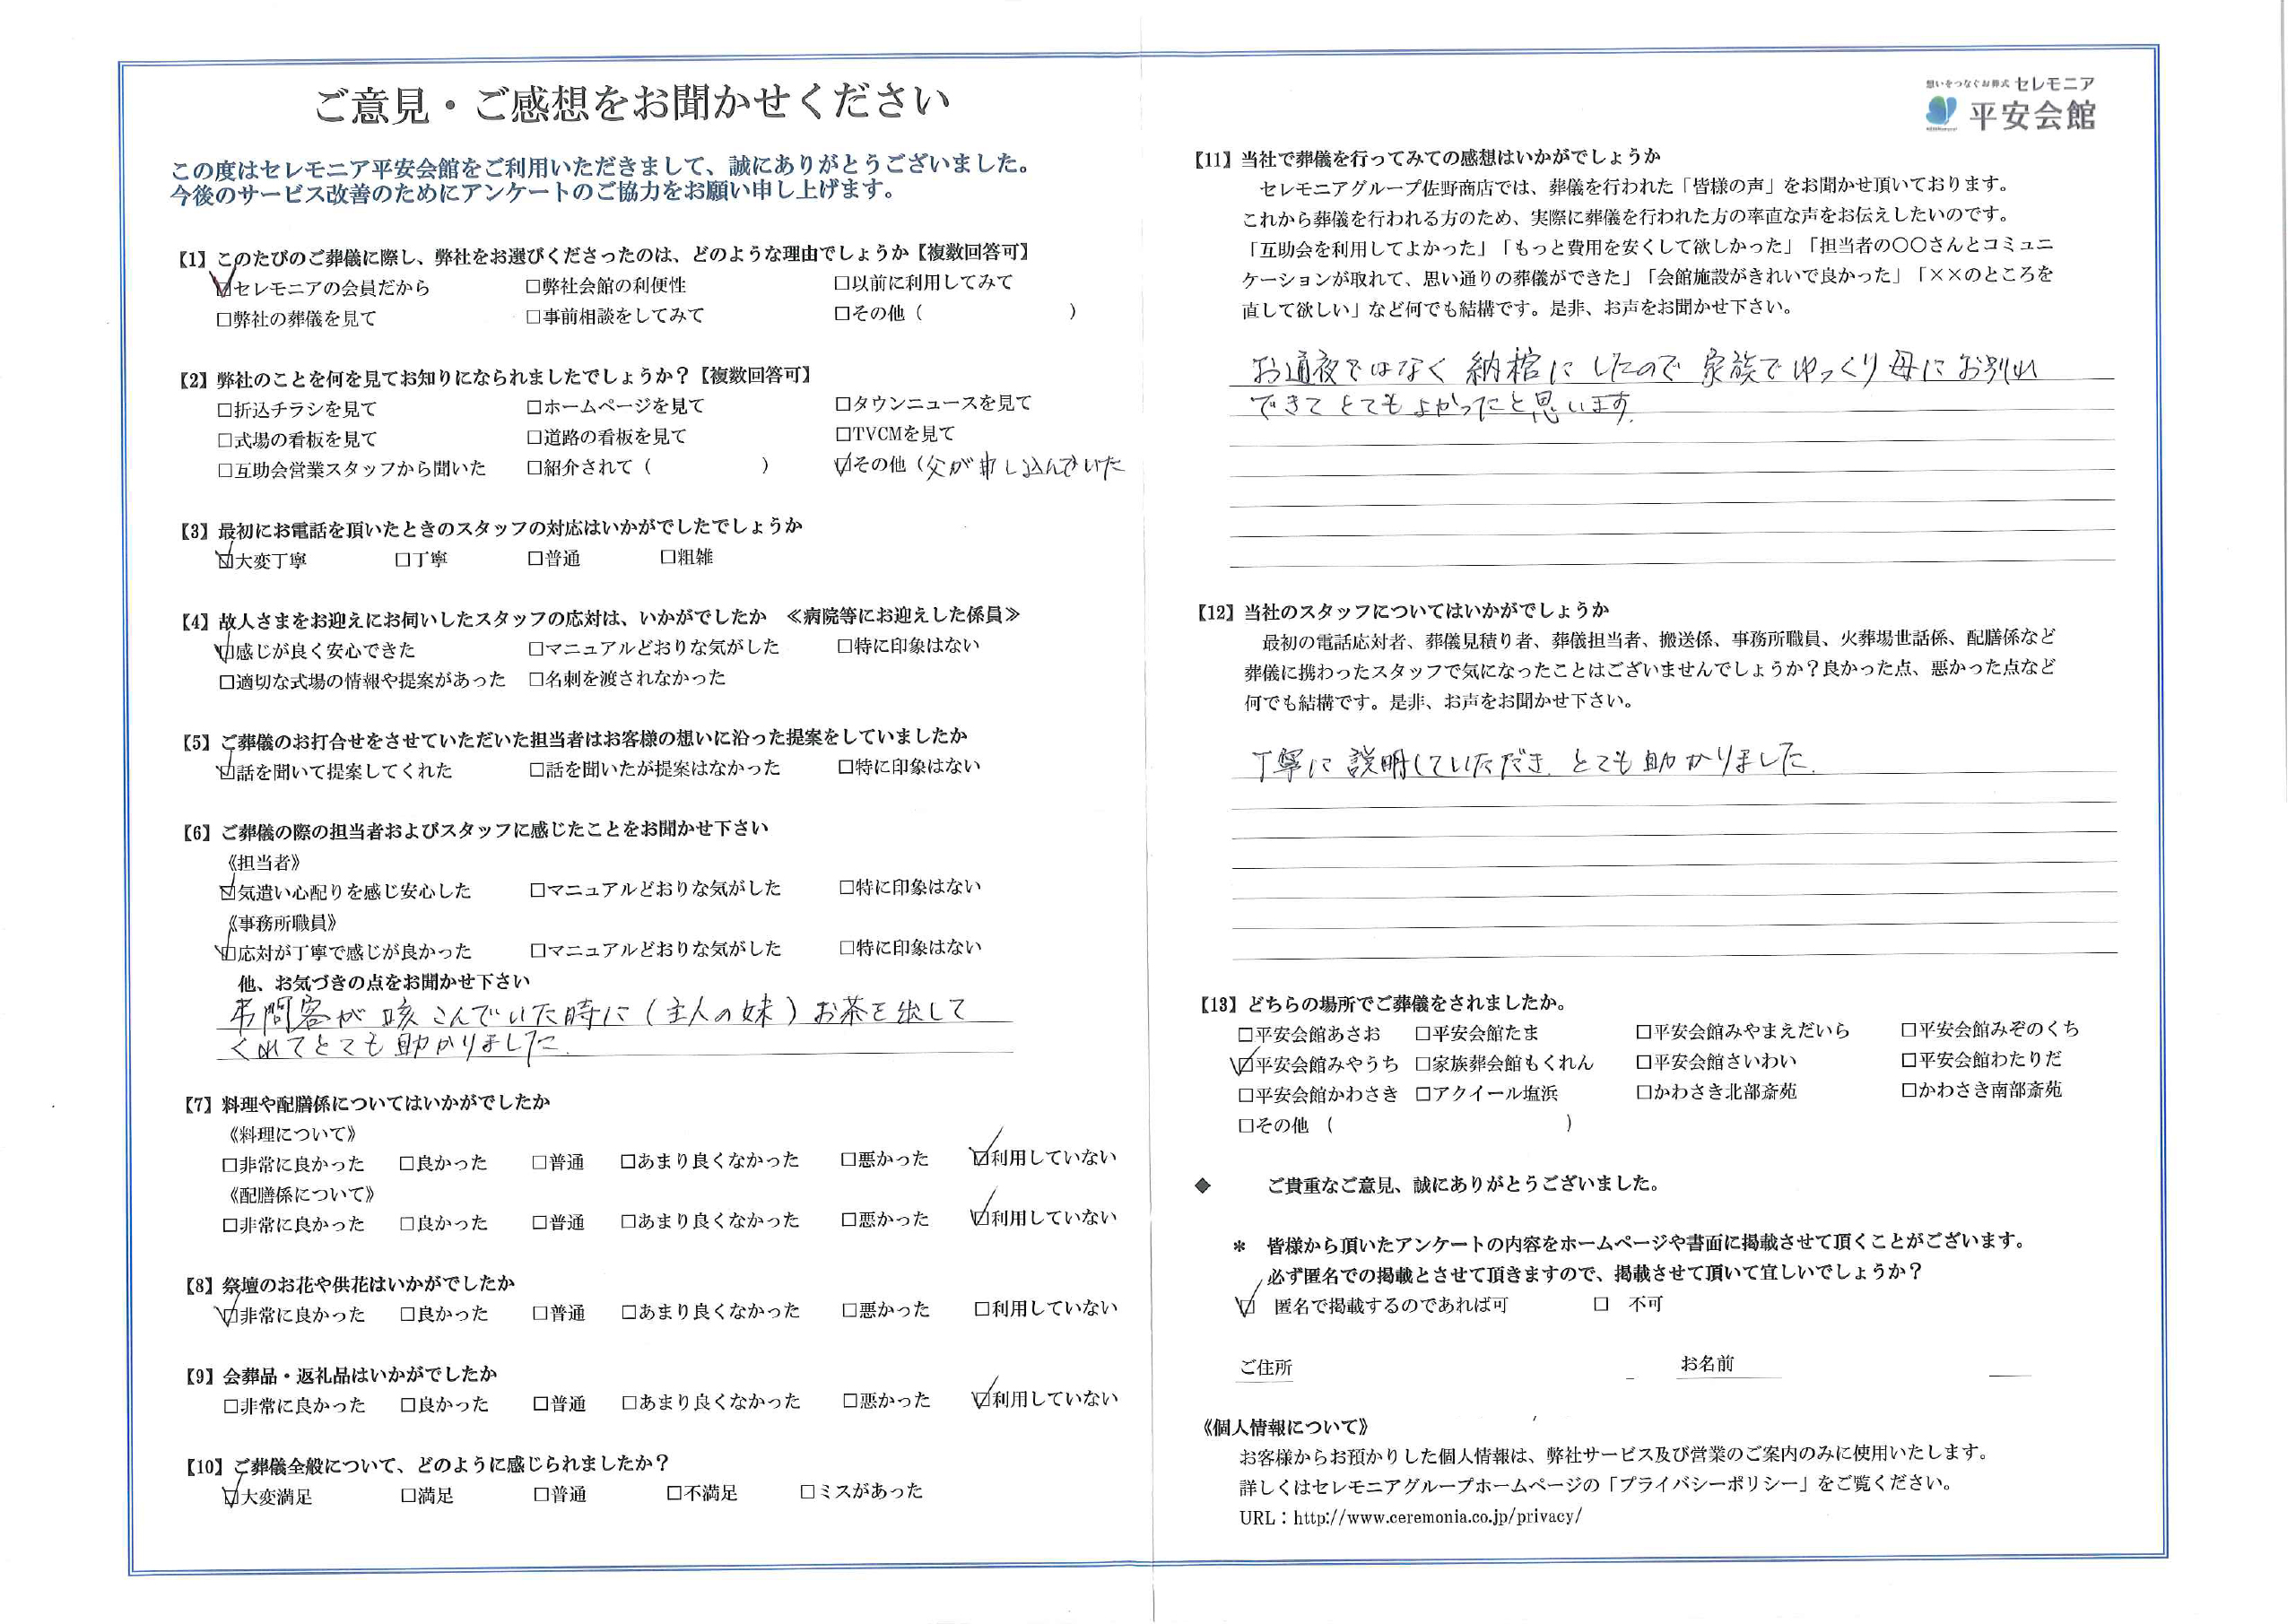 ご意見・ご感想をお聞かせください
この度はセレモニア平安会館をご利用いただきまして、誠にありがとうございました。
今後のサービス改善のためにアンケートのご協力をお願い申し上げます。
【1】このたびのご葬儀に際し、弊社をお選びくださったのは、どのような理由でしょうか【複数回答可】
☑セレモニアの会員だから □弊社会館の利便性 □以前に利用してみて
□弊社の葬儀を見て □事前相談をしてみて □その他（ ）
【2】弊社のことを何を見てお知りになられましたでしょうか？【複数回答可】
□折込チラシを見て □ホームページを見て □タウンニュースを見て
□式場の看板を見て □道路の看板を見て □TVCMを見て
□互助会営業スタッフから聞いた □紹介されて（ ） ☑その他（父が申し込んでいた
【3】最初にお電話を頂いたときのスタッフの対応はいかがでしたでしょうか
☑大変丁寧 □丁寧 □普通 □粗雑
【4】故人さまをお迎えにお伺いしたスタッフの応対は、いかがでしたか ≪病院等にお迎えした係員≫
☑感じが良く安心できた □マニュアルどおりな気がした □特に印象はない
□適切な式場の情報や提案があった □名刺を渡されなかった
【5】ご葬儀のお打合せをさせていただいた担当者はお客様の想いに沿った提案をしていましたか
☑話を聞いて提案してくれた □話を聞いたが提案はなかった □特に印象はない
【6】ご葬儀の際の担当者およびスタッフに感じたことをお聞かせ下さい
《担当者》
☑気遣い心配りを感じ安心した □マニュアルどおりな気がした □特に印象はない
《事務所職員》
☑応対が丁寧で感じが良かった □マニュアルどおりな気がした □特に印象はない
他、お気づきの点をお聞かせ下さい
弔問客が咳こんでいた時に（主人の妹）お茶を出して
くれてとても助かりました
【7】料理や配膳係についてはいかがでしたか
《料理について》
□非常に良かった □良かった □普通 □あまり良くなかった □悪かった ☑利用していない
《配膳係について》
□非常に良かった □良かった □普通 □あまり良くなかった □悪かった ☑利用していない
【8】祭壇のお花や供花はいかがでしたか
☑非常に良かった □良かった □普通 □あまり良くなかった □悪かった □利用していない
【9】会葬品・返礼品はいかがでしたか
□非常に良かった □良かった □普通 □あまり良くなかった □悪かった ☑利用していない
【10】ご葬儀全般について、どのように感じられましたか？
☑大変満足 □満足 □普通 □不満足 □ミスがあった
想いをつなぐお葬式 セレモニア
平安会館
【11】当社で葬儀を行ってみての感想はいかがでしょうか
セレモニアグループ佐野商店では、葬儀を行われた「皆様の声」をお聞かせ頂いております。
これから葬儀を行われる方のため、実際に葬儀を行われた方の率直な声をお伝えしたいのです。
「互助会を利用してよかった」「もっと費用を安くして欲しかった」「担当者の〇〇さんとコミュニ
ケーションが取れて、思い通りの葬儀ができた」「会館施設がきれいで良かった」「××のところを
直して欲しい」など何でも結構です。是非、お声をお聞かせ下さい。
お通夜ではなく納棺にしたので家族でゆっくり母にお別れ
できてとてもよかったと思います。
【12】当社のスタッフについてはいかがでしょうか
最初の電話応対者、葬儀見積り者、葬儀担当者、搬送係、事務所職員、火葬場世話係、配膳係など
葬儀に携わったスタッフで気になったことはございませんでしょうか？良かった点、悪かった点など
何でも結構です。是非、お声をお聞かせ下さい。
丁寧に説明していただき、とても助かりました。
【13】どちらの場所でご葬儀をされましたか。
□平安会館あさお □平安会館たま □平安会館みやまえだいら □平安会館みぞのくち
☑平安会館みやうち □家族葬会館もくれん □平安会館さいわい □平安会館わたりだ
□平安会館かわさき □アクイール塩浜 □かわさき北部斎苑 □かわさき南部斎苑
□その他（ ）
◆ ご貴重なご意見、誠にありがとうございました。
＊ 皆様から頂いたアンケートの内容をホームページや書面に掲載させて頂くことがございます。
必ず匿名での掲載とさせて頂きますので、掲載させて頂いて宜しいでしょうか？
☑ 匿名で掲載するのであれば可 □ 不可
ご住所 お名前
《個人情報について》
お客様からお預かりした個人情報は、弊社サービス及び営業のご案内のみに使用いたします。
詳しくはセレモニアグループホームページの「プライバシーポリシー」をご覧ください。
URL：http://www.ceremonia.co.jp/privacy/